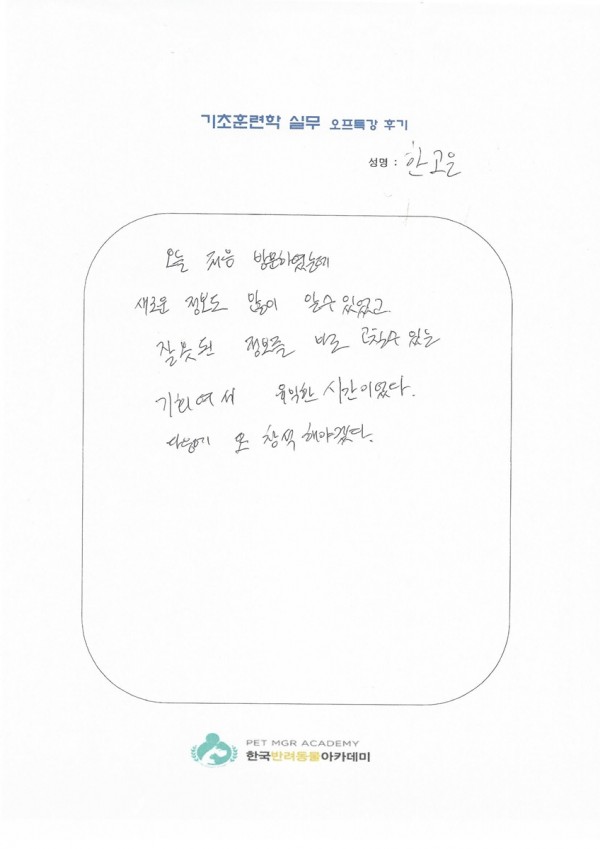 기초훈련학 실무 오프특강 후기
성명 : 한고은
오늘 처음 방문하였는데
새로운 정보도 많이 알수있었고
잘못된 정보를 바로 고칠수 있는
기회여서 유익한 시간이었다.
다음에 또 참석해야겠다.
PET MGR ACADEMY
한국반려동물아카데미